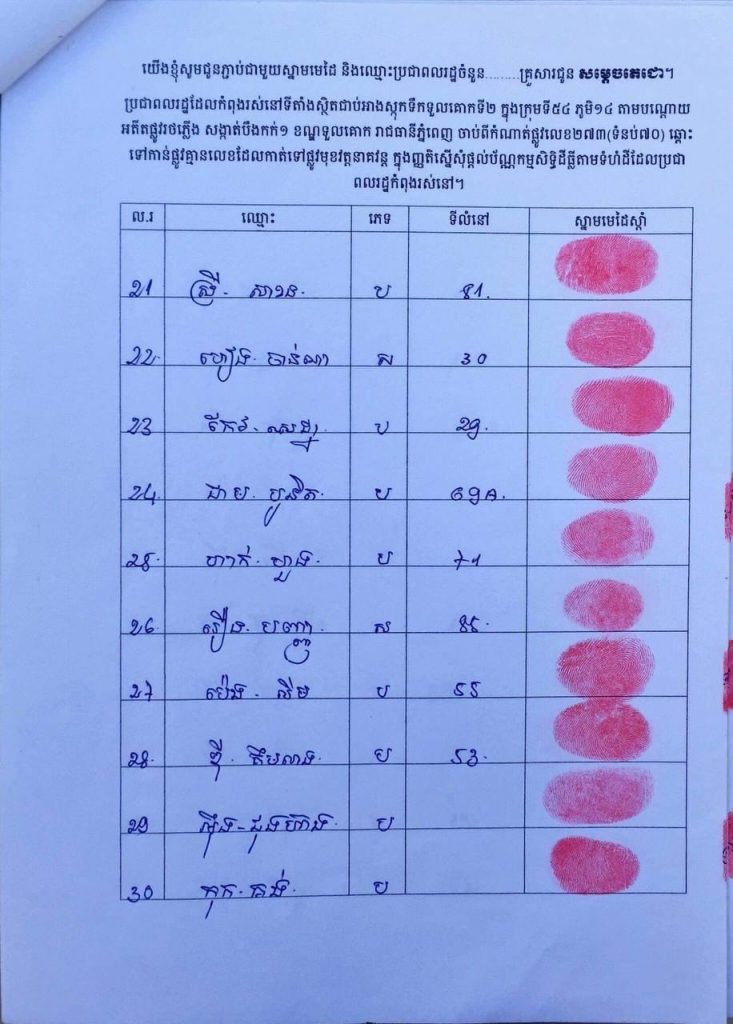 យើងខ្ញុំសូមជូនភ្ជាប់ជាមួយស្នាមមេដៃ និងឈ្មោះប្រជាពលរដ្ឋចំនួន.........គ្រួសារជូន សម្តេចតេជោ។
ប្រជាពលរដ្ឋដែលកំពុងរស់នៅទីតាំងស្ថិតជាប់អាងស្តុកទឹកទួលគោកទី២ ក្នុងក្រុមទី៥៤ ភូមិ១៤ តាមបណ្តោយ
អតីតផ្លូវរថភ្លើង សង្កាត់បឹងកក់១ ខណ្ឌទួលគោក រាជធានីភ្នំពេញ ចាប់ពីកំណាត់ផ្លូវលេខ២៧៣(ទំនប់៧០) ឆ្ពោះ
ទៅកាន់ផ្លូវគ្មានលេខដែលកាត់ទៅផ្លូវមុខវត្តនាគវន្ត ក្នុងញត្តិស្នើសុំផ្តល់ប័ណ្ណកម្មសិទ្ធិដីធ្លីតាមទំហំដីដែលប្រជា
ពលរដ្ឋកំពុងរស់នៅ។
ល.រ ឈ្មោះ ភេទ ទីលំនៅ ស្នាមមេដៃស្តាំ
21 ស្រី. សាខន. ប 81.
22. ហឿង. ចាន់ណា ស 30
23 កែវ. ប 29.
24. ជាម. ប 69A.
25. ហាក់. ម្លួង. ប 71
26. រឿន. បញ្ញា ស
27 ប៉េង. លឹម ប 55
28. ប 53.
29 ប
30 កុក. គង់. ប